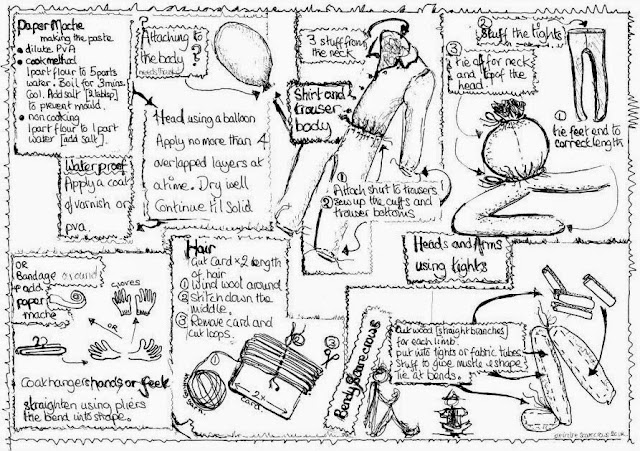 Paper Mache
making the paste
dilute PVA
cook method
1 part flour to 5 parts
water. Boil for 3 mins.
Cool. Add salt [2 tablsp]
to prevent mould.
non cooking
1 part flour to 1 part
water [add salt].
Waterproof
Apply a coat
of varnish or
pva.
Attaching to
the body
?
Head using a balloon
Apply no more than 4
overlapped layers at
a time. Dry well
Continue til solid
3 stuff from
the neck
Shirt and
trouser
body
① Attach shirt to trousers!
② Sew up the cuffs and
trouser bottoms
②
Stuff the tights
③
tie off for neck
and top of the
head.
①
tie feet end to
correct length
Heads and Arms
using tights
OR
Bandage around
+ add
paper
mache
gloves
OR
Coat hangers hands or feet
straighten using pliers
the bend into shape.
Hair
Cut Card × 2 length
of hair
① Wind wool around
② Stitch down the
middle.
③ Remove card and
cut loops.
③
2×
card
Bendy Scarecrows
Cut wood [straight branches]
for each limb.
put into tights or fabric tubes
Stuff to give muscle + shape
Tie at bends.